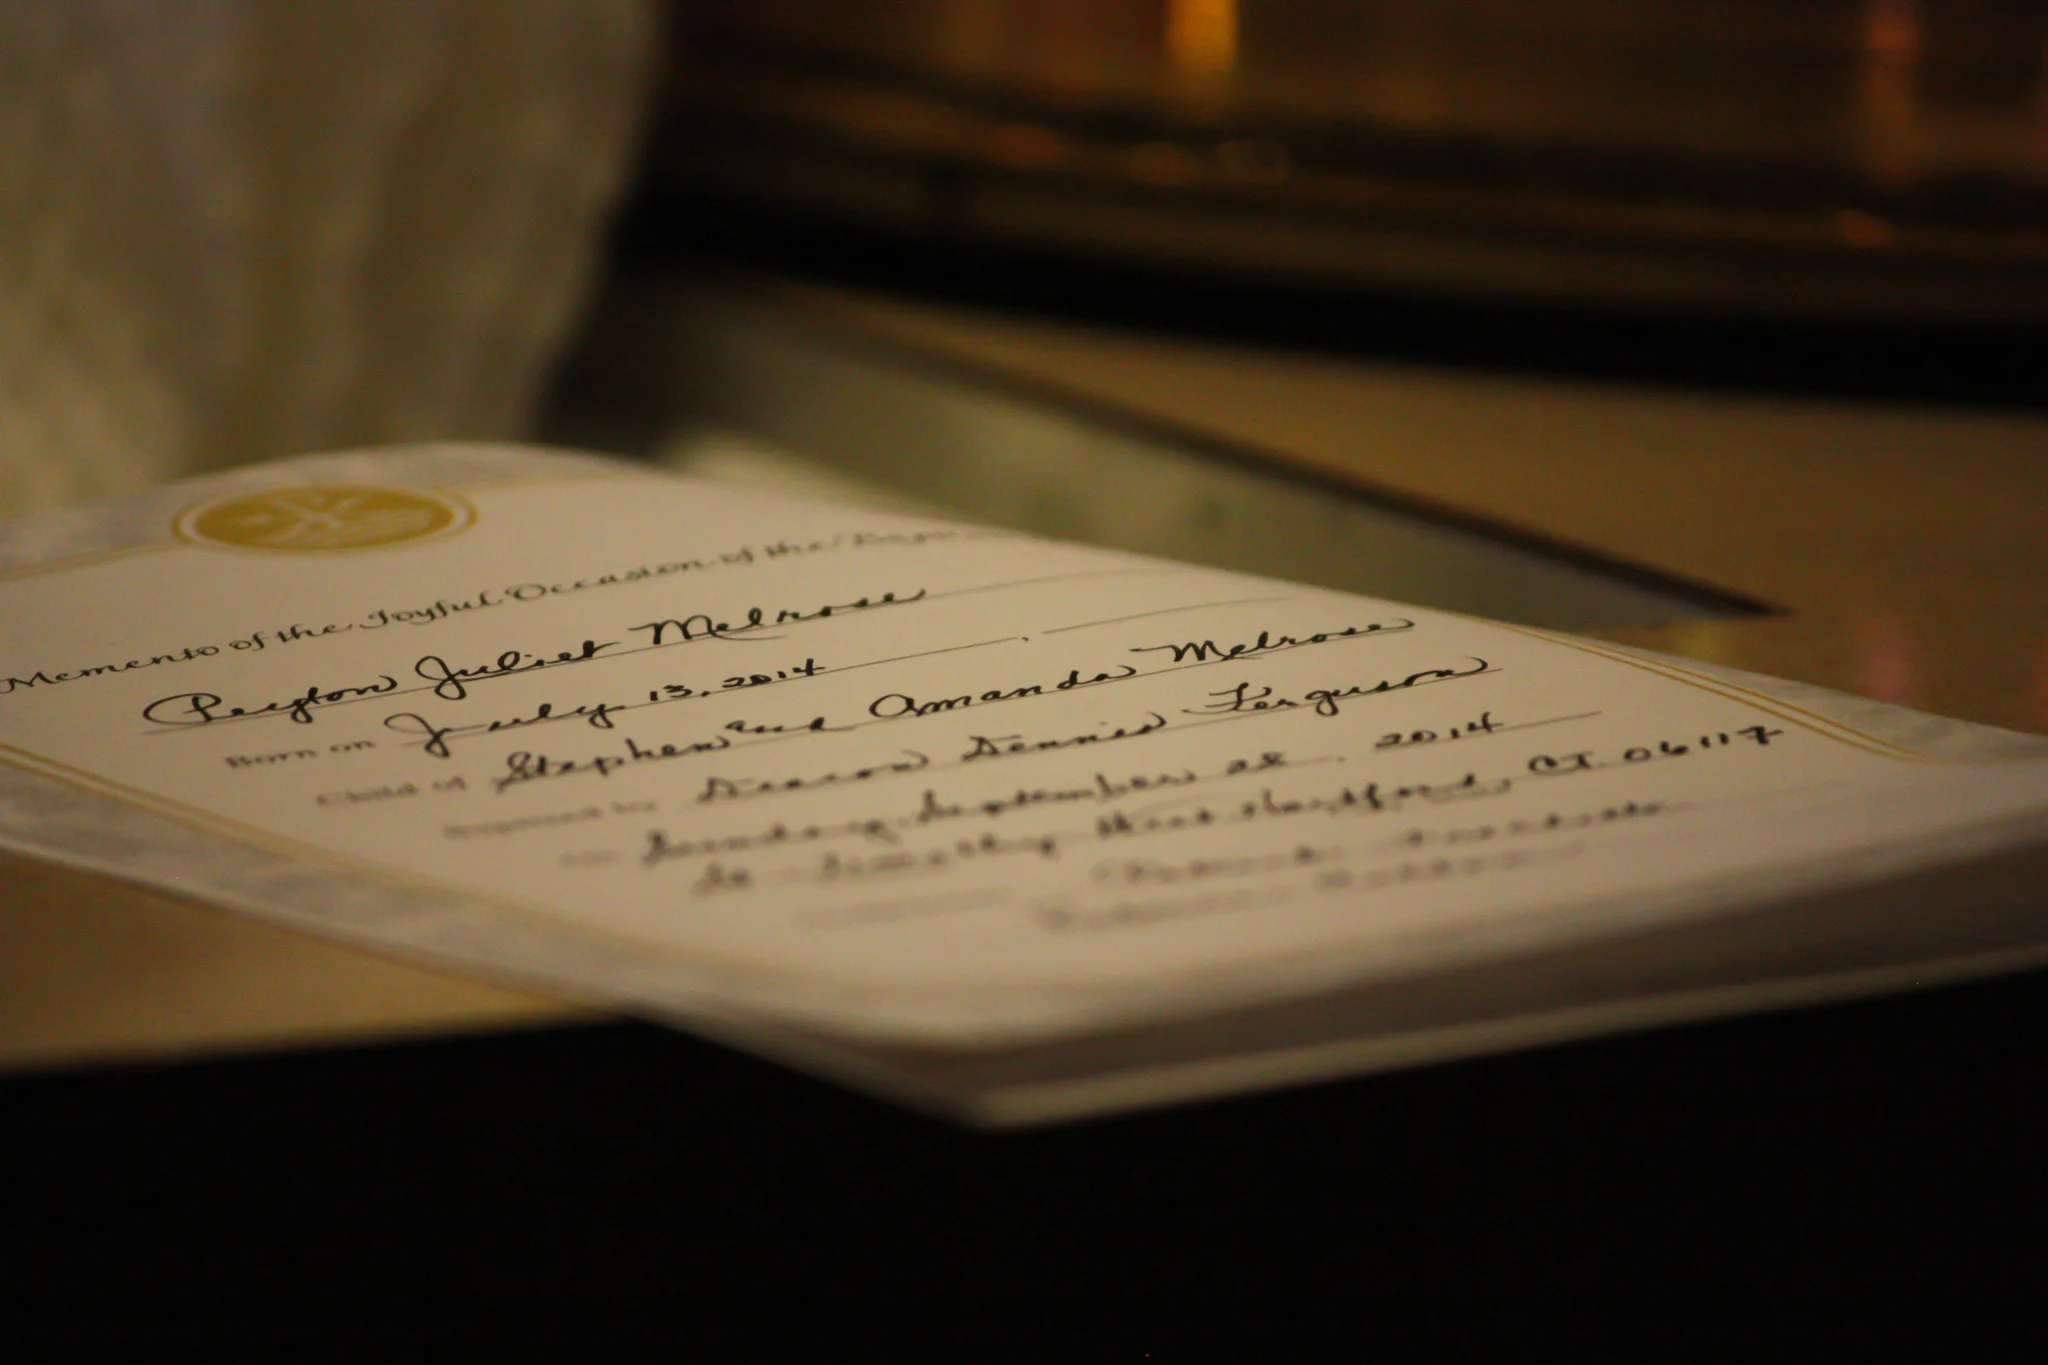 Memento of the Joyful Occasion of the
Peyton Juliet Melrose
Born on July 13, 2014
Child of Stephen and Amanda Melrose
Baptized by Deacon Dennis Ferguson
Sunday, September 28, 2014
St. Timothy West Hartford, CT. 06117